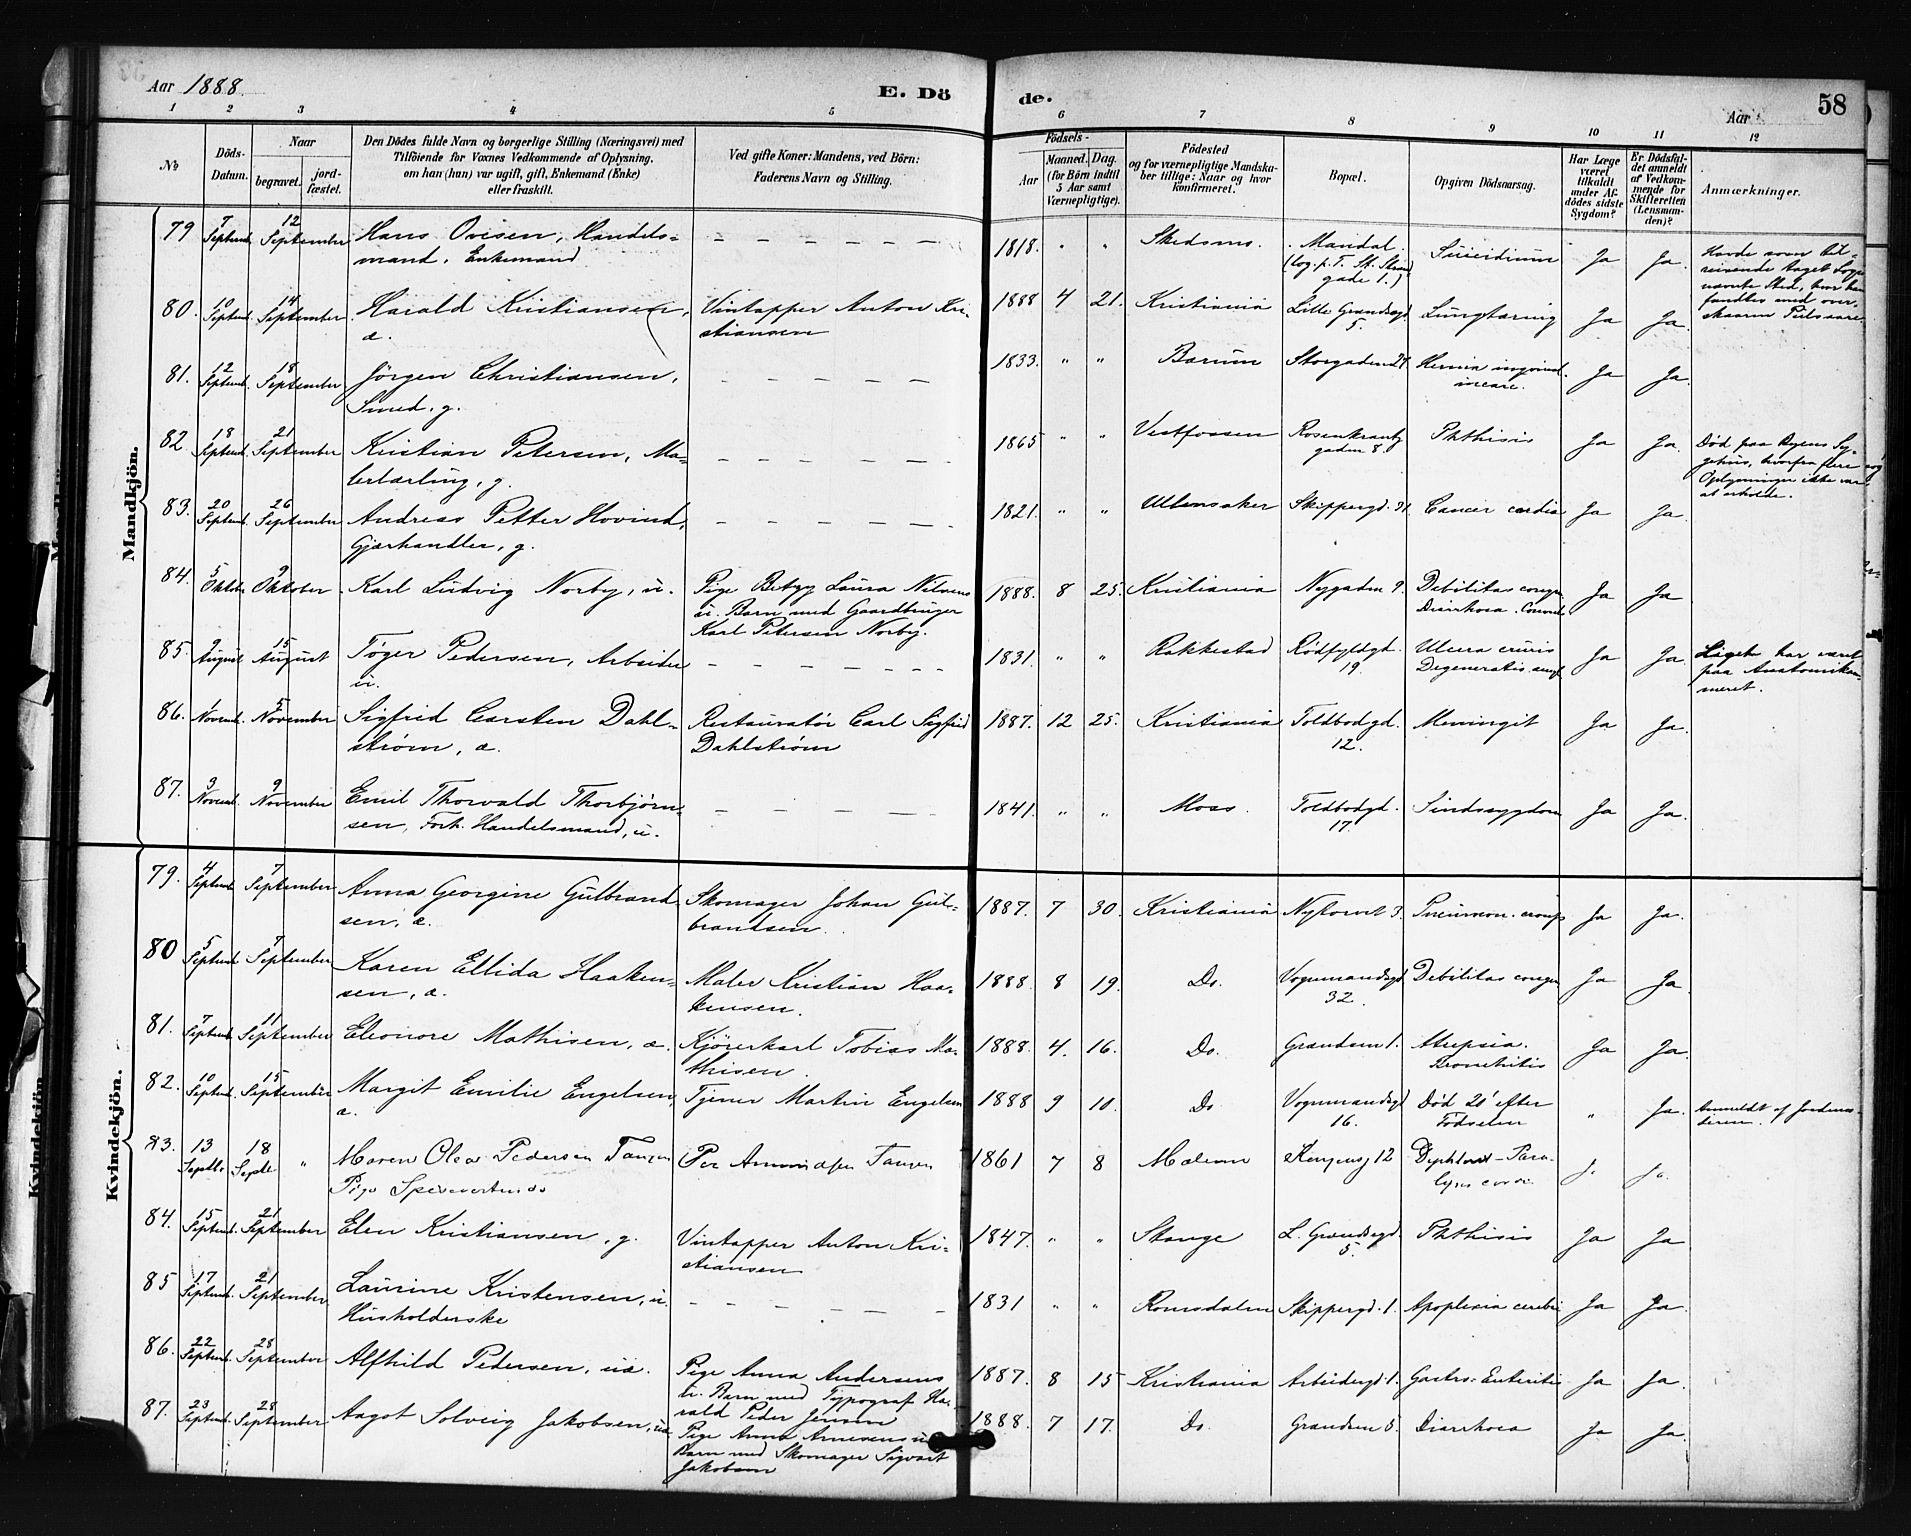 Aar 1888.
E. Dö
de.
Aar
58
1 2 3 4 5 6 7 8 9 10 11 12
No
Döds-Datum.
Naar
begravet.
jord-fæstet.
Den Dödes fulde Navn og borgerlige Stilling (Næringsvei) med
Tilföiende for Voxnes Vedkommende af Oplysning,
om han (hun) var ugift, gift, Enkemand (Enke)
eller fraskilt.
Ved gifte Koner: Mandens, ved Börn:
Faderens Navn og Stilling.
Födsels-
Aar
Maaned. Dag.
(for Börn indtil
5 Aar samt
Værnepligtige).
Födested
og for værnepligtige Mandska-
ber tillige: Naar og hvor
konfirmeret.
Bopæl.
Opgiven Dödsaarsag.
Har Læge
været
tilkaldt
under Af-
dödes sidste
Sygdom?
Er Dödsfal-
det anmeldt
af Vedkom-
mende for
Skifteretten
(Lensman-
den)?
Anmærkninger.
Mandkjön.
79 7 Septemb. 12 September Hans Ovesen, Handels- 1818. " " Skedsmo. Mandal. Suicidium Ja Ja.
mand, Enkemand
80. 10 Septemb. 14 September Harald Kristiansen, Vintapper Anton Kri- 1888 4 21. Kristiania Lille Grændsegd. Lungtæring Ja Ja.
æ. stiansen 5.
81. 12 Septemb. 18 September Jörgen Christiansen, 1833. " " Bærum Storgaden 24. Hernia Ja Ja.
Smed, g.
82 18 Septemb. 21 September Kristian Petersen, Ma- 1865 " " Vestfossen Rosenkrantz Phthisis Ja Ja. Död paa Byens Sy-
lerlærling, g. gaden 8. gehus, hvorfra flere
Oplysninger ikke var
at erholde.
83. 20 Septemb. 26 September Andreas Petter Hovind, 1821. " " Ullensaker Skippergd. Cancer cardia Ja Ja.
Gjærhandler, g.
84. 5 Oktbr. 9 Oktober Karl Ludvig Norby, u. Pige Betzy Laura Nilsens 1888. 8 25. Kristiania Nygaden 9. Debilitas congen. Ja Ja
u. Barn med Gaardbruger Diarrhoea.
Karl Petersen Norby.
85. 9 August 15 August Töger Pedersen, Arbeider 1831. " " Rakkestad Rödfyldgd. Ulcera cruris Ja Ja. Liget har været
u. 19. Degeneratio paa Anatomikam-
meret.
86. 1 Novemb. 5 November Sigfrid Carsten Dahl- Restauratör Carl Sigfrid 1887. 12 25. Kristiania Toldbodgd. Meningit Ja Ja.
ström, æ. Dahlström 12.
87. 3 Novemb. 9 November Emil Thorvald Thorbjörn- 1841. " " Moss. Toldbodgd. Sindssygdom Ja Ja.
sen, Forh. Handelsmand, u. 17.
Kvindekjön.
79. 4 Septemb. 7 September Anna Georgine Gulbrand- Skomager Johan Gul- 1887. 7 30. Kristiania Nytorvet 3. Pneumon. croup. Ja Ja.
sen, æ. brandsen.
80 5 Septemb. 7 September Karen Ellida Haaken- Maler Kristian Haa- 1888 8 19. Do. Vognmandsgd. Debilitas congen. Ja Ja.
sen, æ. kensen. 32.
81. 7 Septemb. 11 September Eleonore Mathisen, æ. Kjörerkarl Tobias Ma- 1888. 4. 16. Do. Grændsen 1. Atrepsia. Ja Ja.
thisen. Bronchitis
82. 10 Septemb. 15 September Margit Emilie Engelsen, Tjener Martin Engelsen 1888 9 10. Do Vognmandsgd. Död 20' efter " Ja. Anmeldt af Jordmo-
æ. 16. Födselen deren.
83. 13 Septbr 18 Septbr " Maren Olea Pedersen Pige 1861 7 8 12 Ja.
84. 15 Septemb. 21 September Elen Kristiansen, g. Vintapper Anton Kri- 1847. " " Stange L. Grændsegd. Phthisis Ja Ja
stiansen 5.
85 17 Septemb. 21 September Laurine Kristensen, u. 1831 " " Romsdalen Skippergd. 1. Apoplexia cerebri Ja Ja.
Husholderske
86. 22 Septemb. 28 September Alfhild Pedersen, uæ. Pige Anna Andersens 1887. 8 15 Kristiania Arbeidergd. 1. Gastro-Enterit. Ja Ja.
u. Barn med Typograf Ha-
rald Peder Jensen
87. 23 Septemb. 28 September Aagot Solveig Jakobsen, uæ Pige Anna Arnesens u. 1888. 7 17. Do. Grændsen 5. Diarrhoea Ja Ja.
Barn med Skomager Sigvart
Jakobsen